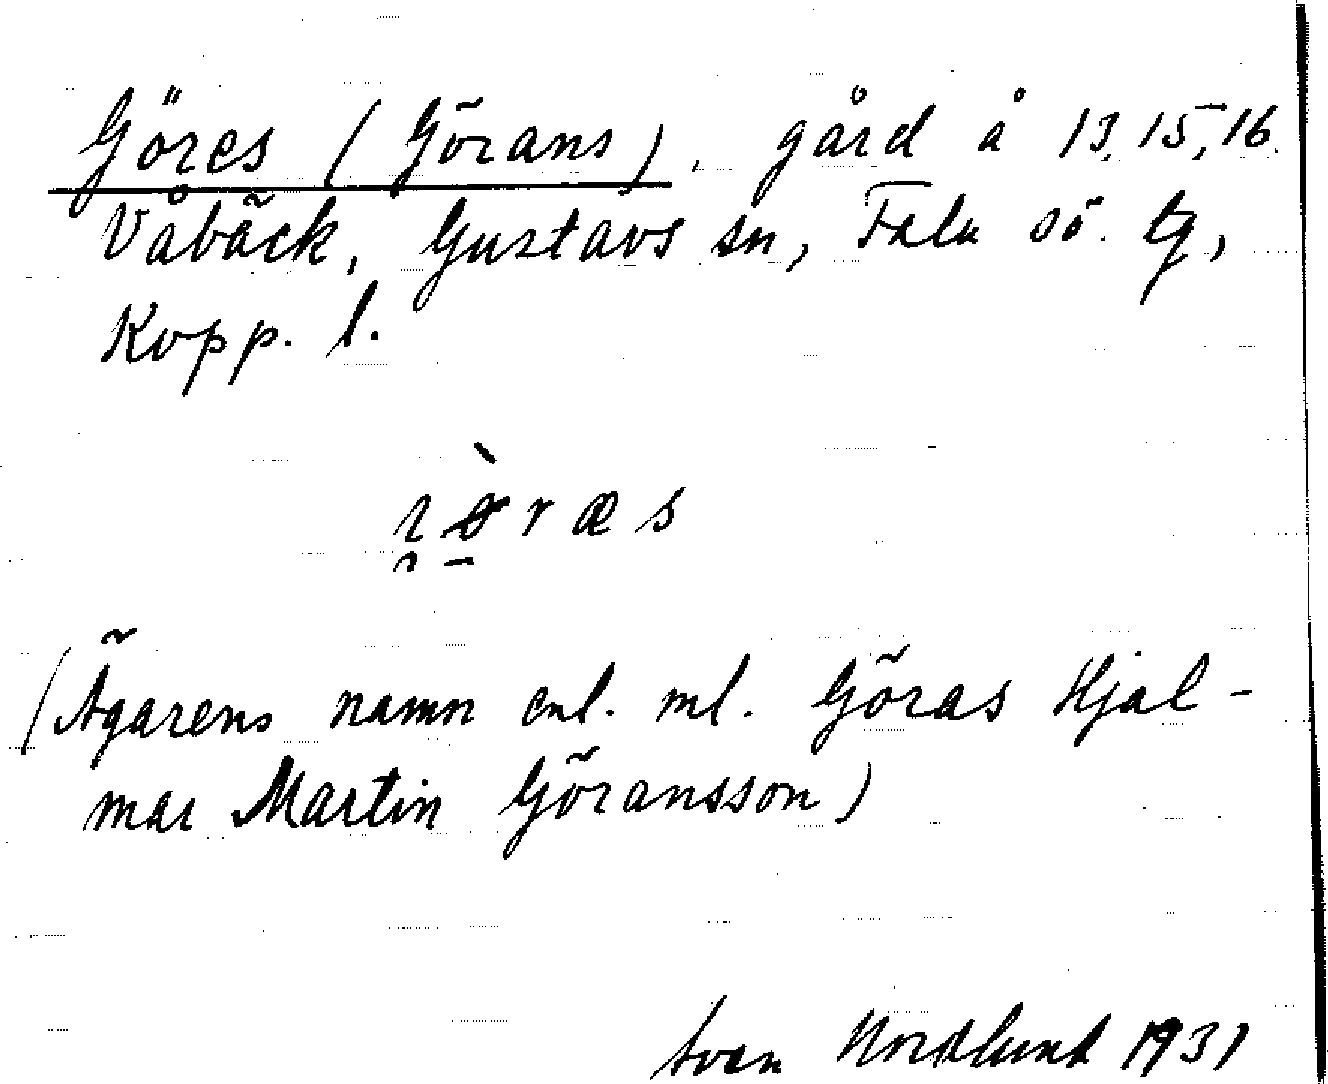 Göres (Görans), gård å 13, 15, 16
Våbäck, Gustavs sn, Falu sö. tg,
Kopp. l.
ræs
(Ägarens namn enl. ml. Göras Hjal-
mar Martin Göransson)
Svan Nordlund 1931